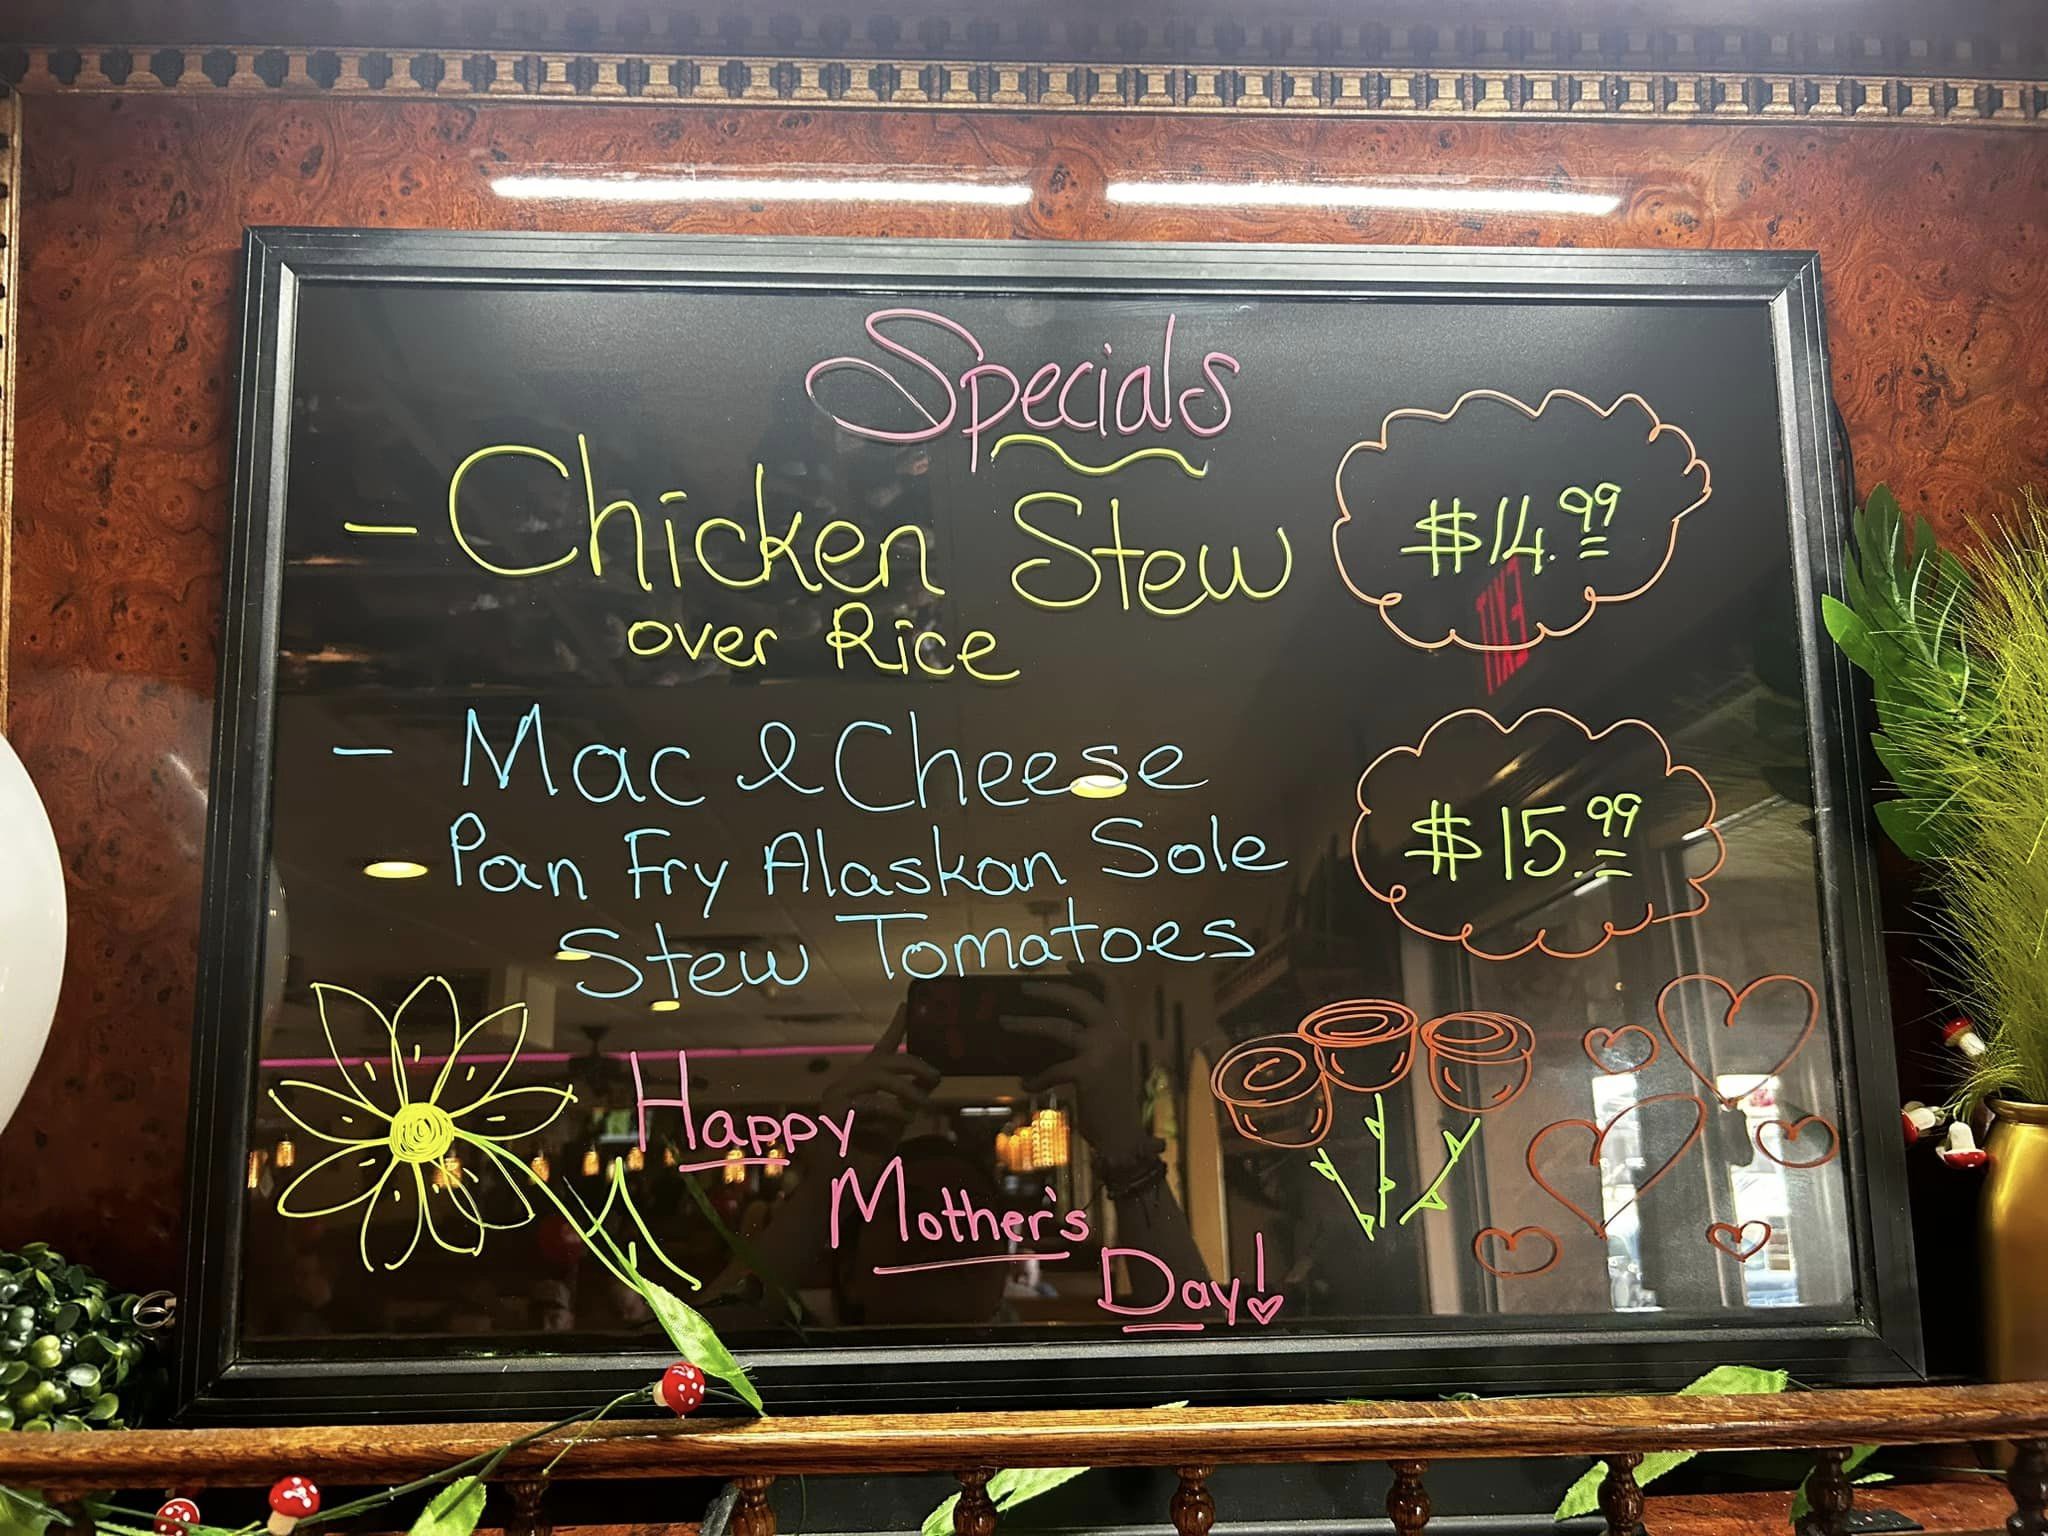 Specials
- Chicken Stew $14.99
over Rice
- Mac & Cheese
Pan Fry Alaskan Sole $15.99
Stew Tomatoes
Happy
Mother's
Day!
EXIT